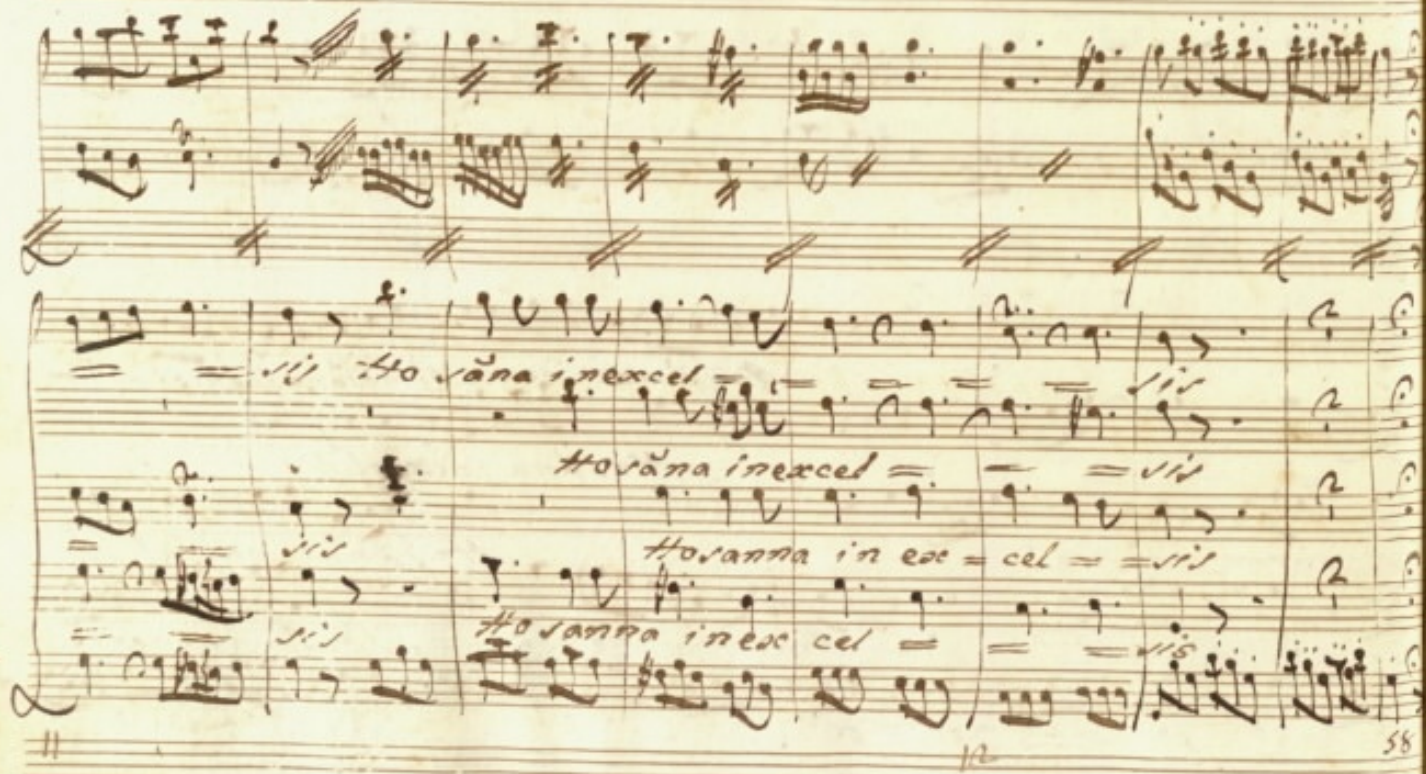 = = sis Ho sāna in excel = = = = = sis
Hosāna in excel = = = sis
= = sis Hosanna in ex = cel = = sis
= = sis Ho sanna in ex cel = = = sis
11 12 58